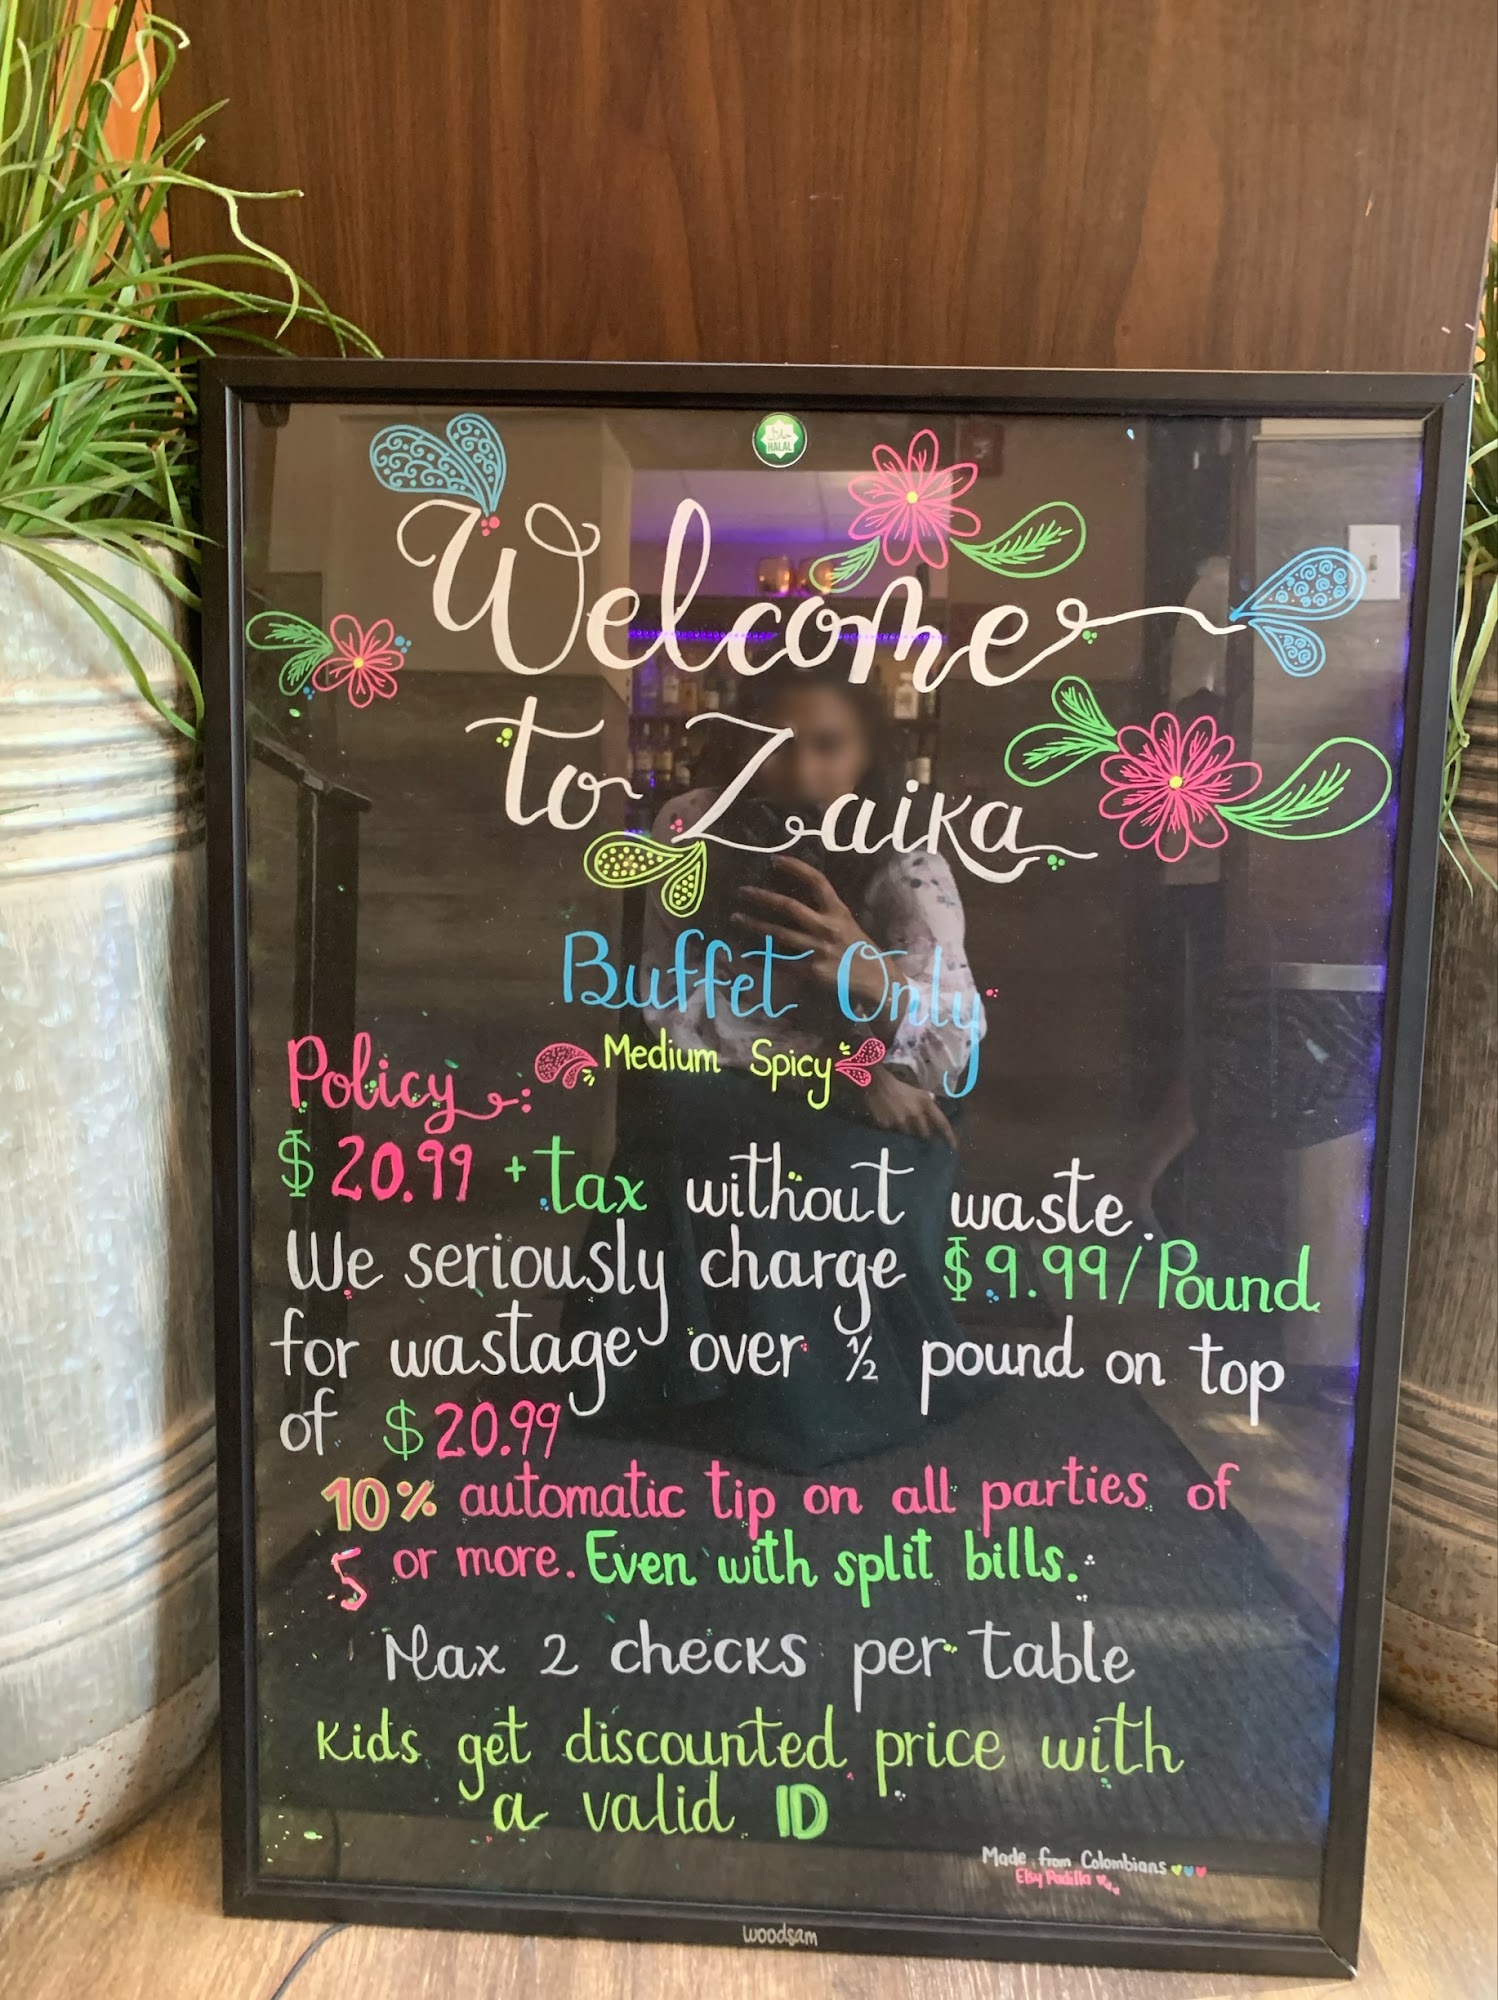 حلال
HALAL
Welcome
to Zaika
Buffet Only
Medium Spicy
Policy:
$20.99 + tax without waste.
We seriously charge $9.99/Pound
for wastage over ½ pound on top
of $20.99
10% automatic tip on all parties of
5 or more. Even with split bills.
Max 2 checks per table
Kids get discounted price with
a valid ID
Made from Colombians
Elsy Padilla
woodsam